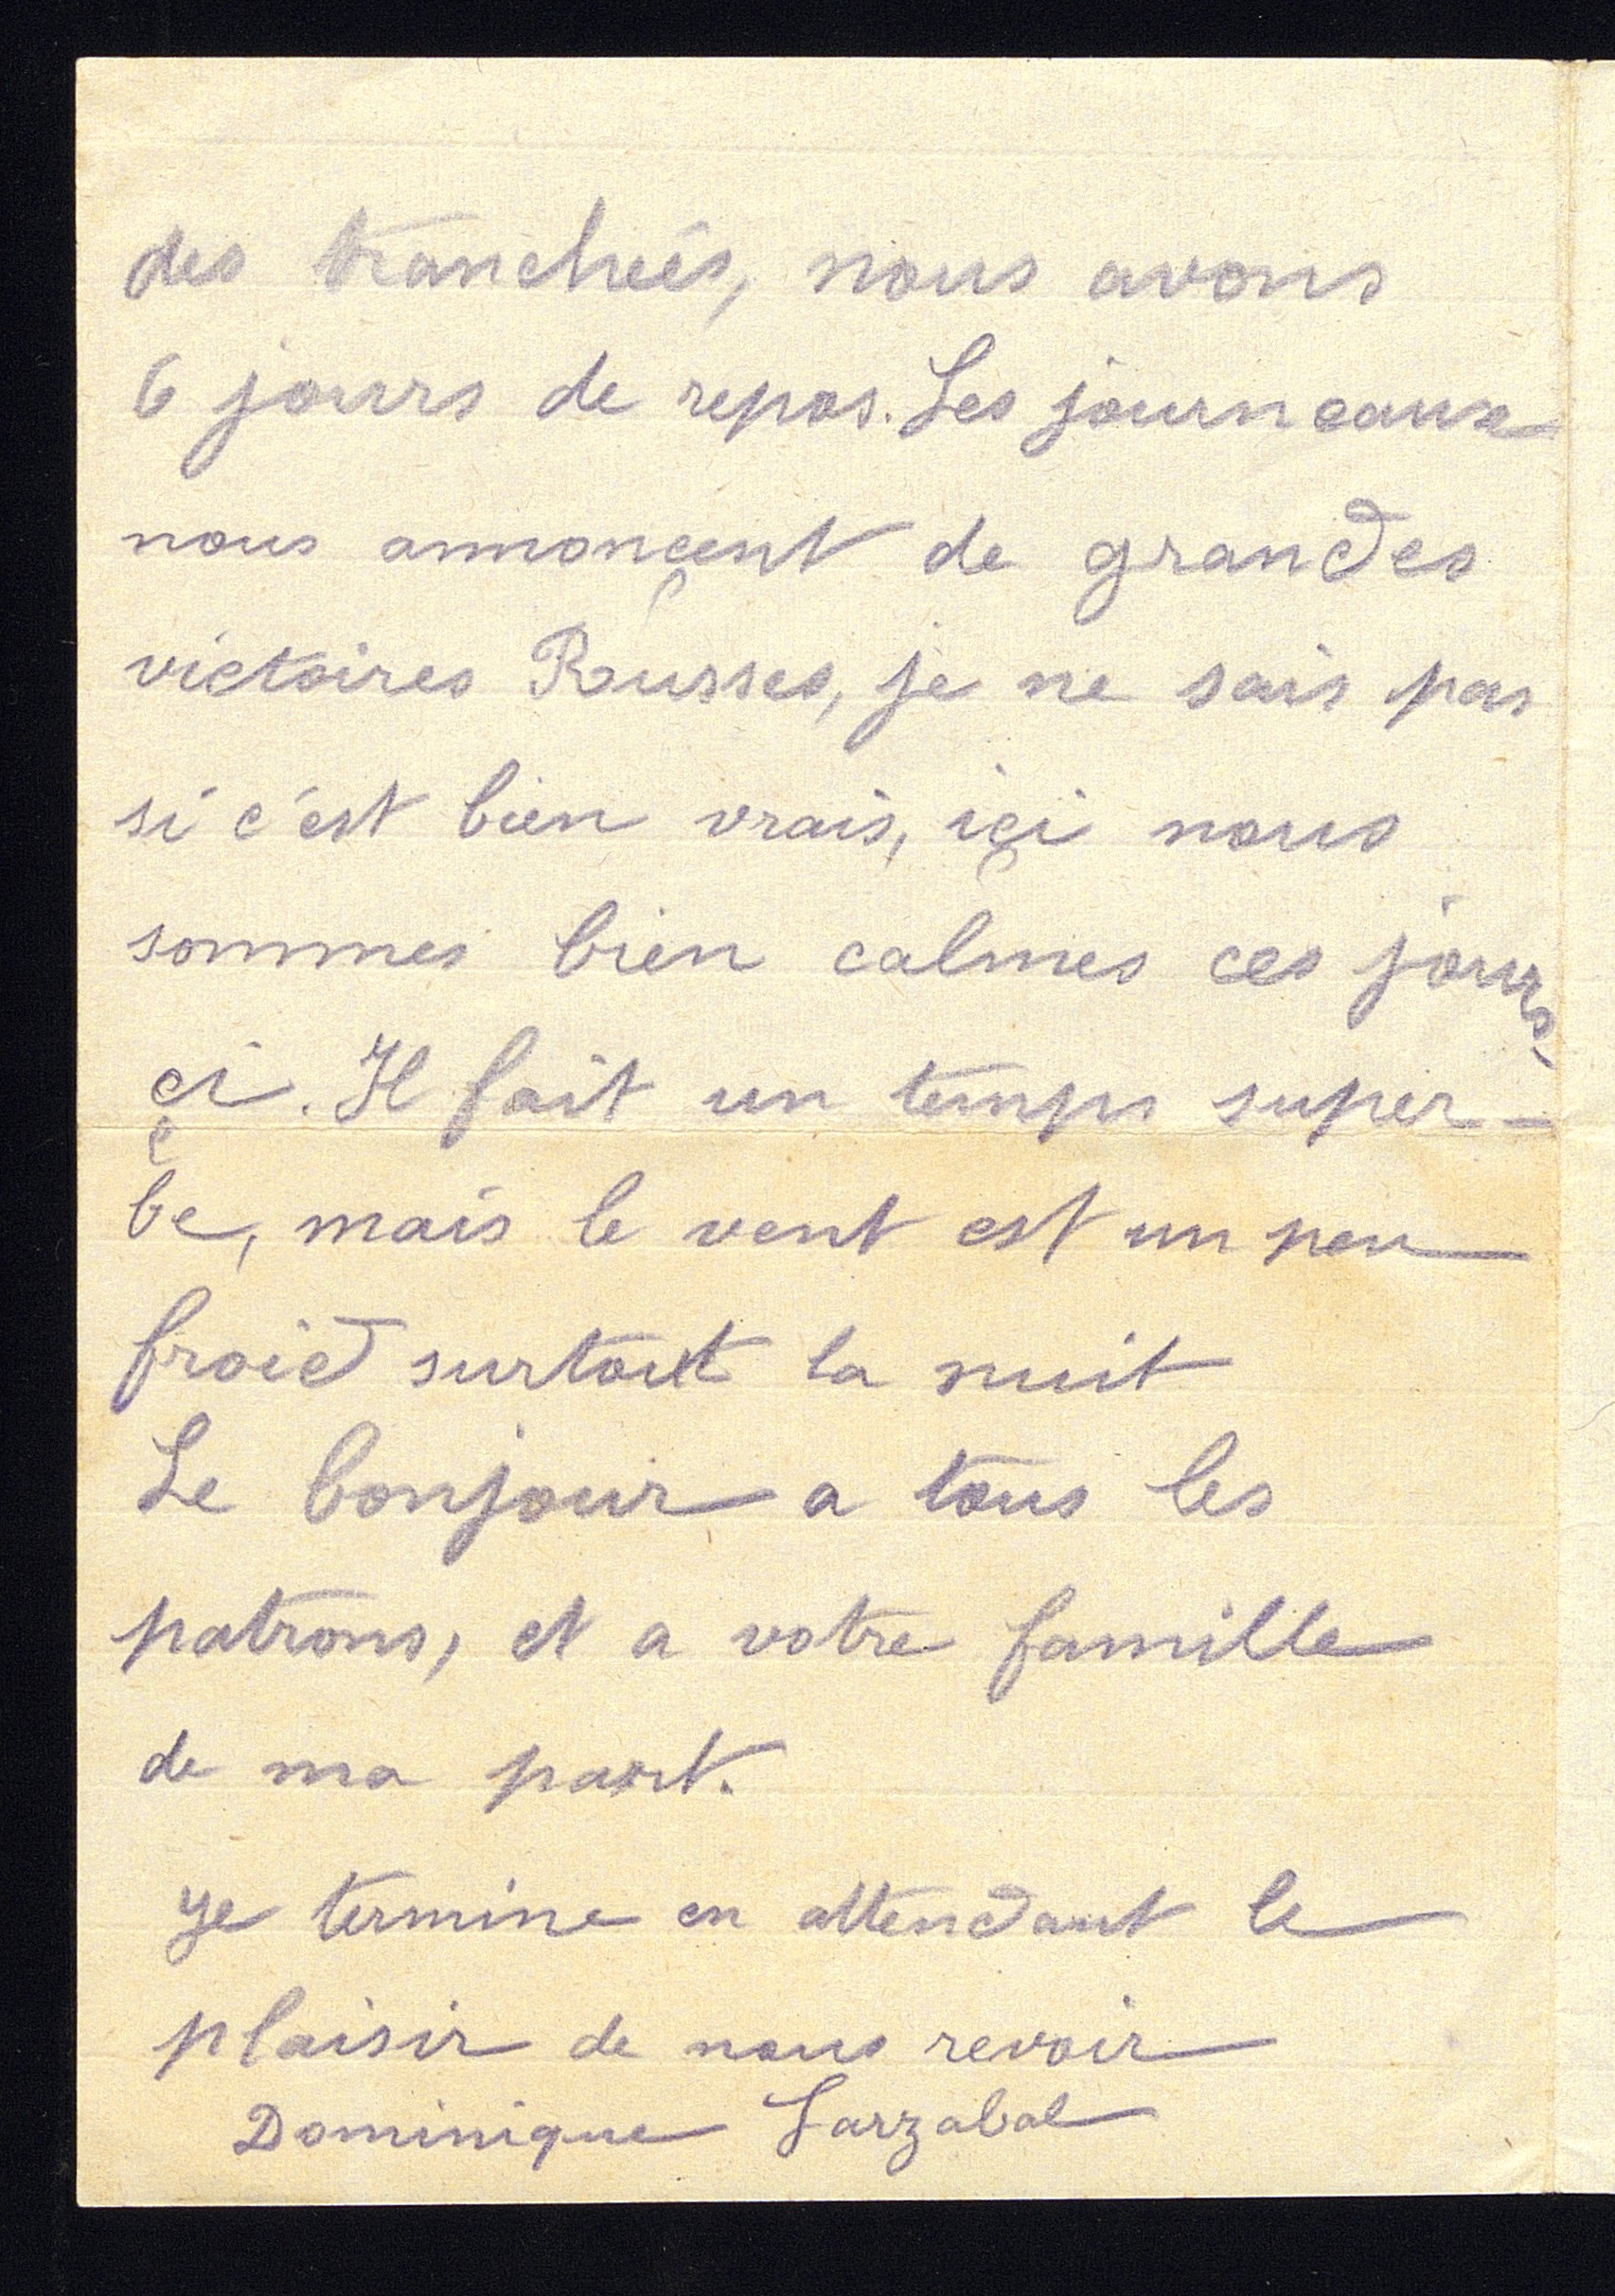 des tranchées, nous avons
6 jours de repos. Les journeaux
nous annonçent de grandes
victoires Rousses, je ne sais pas
si c'est bien vrais, içi nous
sommes bien calmes ces jours
çi. Il fait un temps super-
be, mais le vent est un peu
froid surtout la nuit
Le bonjour a tous les
patrons, et a votre famille
de ma part.
Je termine en attendant le
plaisir de nous revoir
Dominique Larzabal